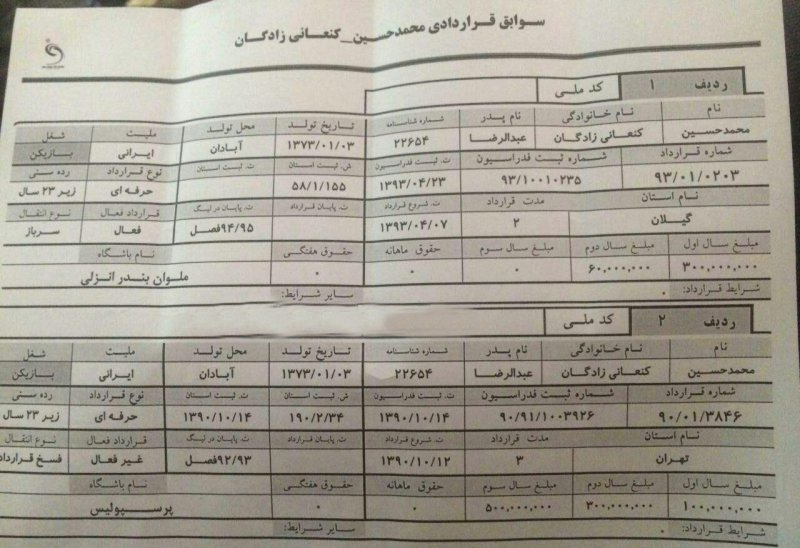 سوابق قراردادی محمدحسین_کنعانی زادگان
ردیف ۱ کد ملی
نام نام خانوادگی نام پدر شماره شناسنامه تاریخ تولد محل تولد ملیت شغل
محمدحسین کنعانی زادگان عبدالرضا ۲۲۶۵۴ ۱۳۷۳/۰۱/۰۳ آبادان ایرانی بازیکن
شماره قرارداد شماره ثبت فدراسیون ت. ثبت فدراسیون ش. ثبت استان ت. ثبت استان نوع قرارداد رده سنی
۹۳/۰۱/۰۲۰۳ ۹۳/۱۰۰۱۰۲۳۵ ۱۳۹۳/۰۴/۲۳ ۵۸/۱/۱۵۵ حرفه ای زیر ۲۳ سال
نام استان مدت قرارداد ت. شروع قرارداد ت. پایان قرارداد ت. پایان در لیگ قرارداد فعال نوع انتقال
گیلان ۲ ۱۳۹۳/۰۴/۰۷ ۹۴/۹۵فصل فعال سرباز
مبلغ سال اول مبلغ سال دوم مبلغ سال سوم حقوق ماهانه حقوق هفتگی نام باشگاه
۳۰۰,۰۰۰,۰۰۰ ۶۰,۰۰۰,۰۰۰ ۰ ۰ ۰ ملوان بندر انزلی
شرایط قرارداد: ۰ سایر شرایط:
ردیف ۲ کد ملی
نام نام خانوادگی نام پدر شماره شناسنامه تاریخ تولد محل تولد ملیت شغل
محمدحسین کنعانی زادگان عبدالرضا ۲۲۶۵۴ ۱۳۷۳/۰۱/۰۳ آبادان ایرانی بازیکن
شماره قرارداد شماره ثبت فدراسیون ت. ثبت فدراسیون ش. ثبت استان ت. ثبت استان نوع قرارداد رده سنی
۹۰/۰۱/۳۸۴۶ ۹۰/۹۱/۱۰۰۳۹۲۶ ۱۳۹۰/۱۰/۱۴ ۱۹۰/۲/۳۴ ۱۳۹۰/۱۰/۱۴ حرفه ای زیر ۲۳ سال
نام استان مدت قرارداد ت. شروع قرارداد ت. پایان قرارداد ت. پایان در لیگ قرارداد فعال نوع انتقال
تهران ۳ ۱۳۹۰/۱۰/۱۲ ۹۲/۹۳فصل غیر فعال فسخ قرارداد
مبلغ سال اول مبلغ سال دوم مبلغ سال سوم حقوق ماهانه حقوق هفتگی نام باشگاه
۱۰۰,۰۰۰,۰۰۰ ۳۰۰,۰۰۰,۰۰۰ ۵۰۰,۰۰۰,۰۰۰ ۰ ۰ پرسپولیس
شرایط قرارداد: ۰ سایر شرایط: